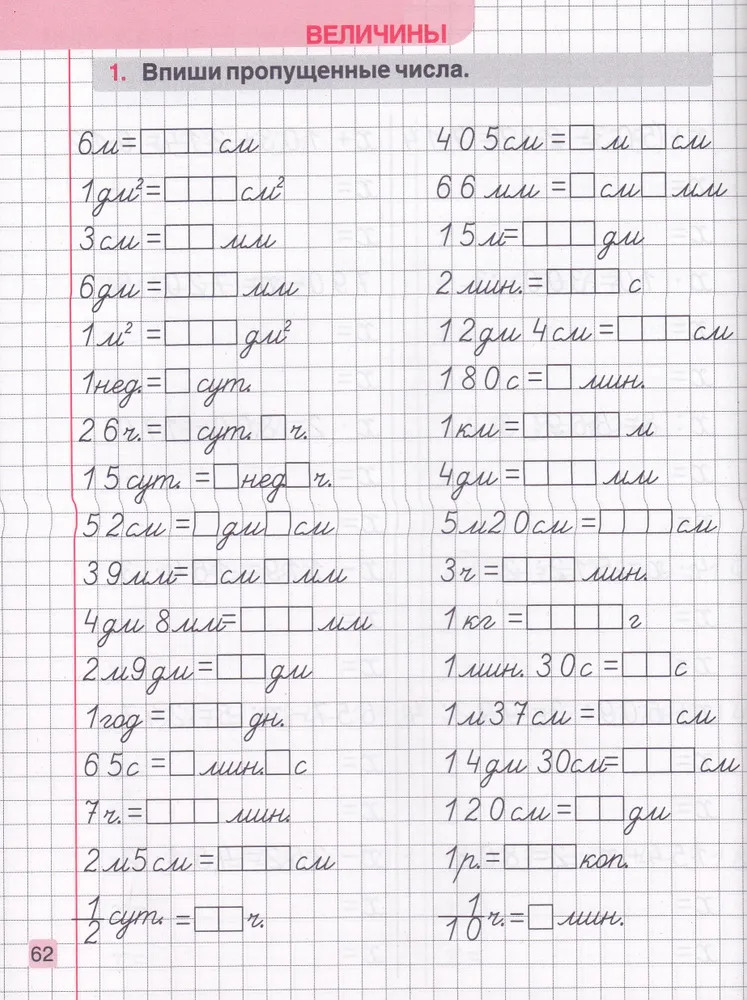 ВЕЛИЧИНЫ
1. Впиши пропущенные числа.
6м=□□□ см
1дм²=□□□см²
3см =□□ мм
6дм =□□□ мм
1м² =□□□ дм²
1нед.=□ сут.
26ч.=□ сут. □ч.
15сут. =□нед□ч.
52см =□дм□см
39мм=□см□мм
4дм 8мм=□□□мм
2м9дм=□□дм
1год =□□□ дн.
65с =□мин.□с
7ч.=□□□ мин.
2м5см =□□□см
1/2 сут. =□□ч.
405см =□ м □см
66 мм =□см□мм
15м=□□□ дм
2мин.=□□□ с
12дм 4см =□□□см
180с=□ мин.
1км=□□□□ м
4дм=□□□ мм
5м20см =□□□см
3ч =□□□ мин.
1кг =□□□□г
1мин. 30с =□□с
1м37см =□□□ см
14дм 30см=□□□см
120см=□□дм
1р.=□□□коп.
1/10 ч.=□мин.
62